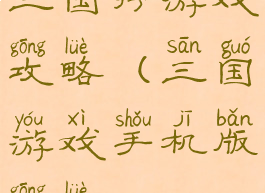 gōng lüè sān guó
攻略(三国
yóu xì shǒu jī bǎn
游戏手机版
gōng lüè